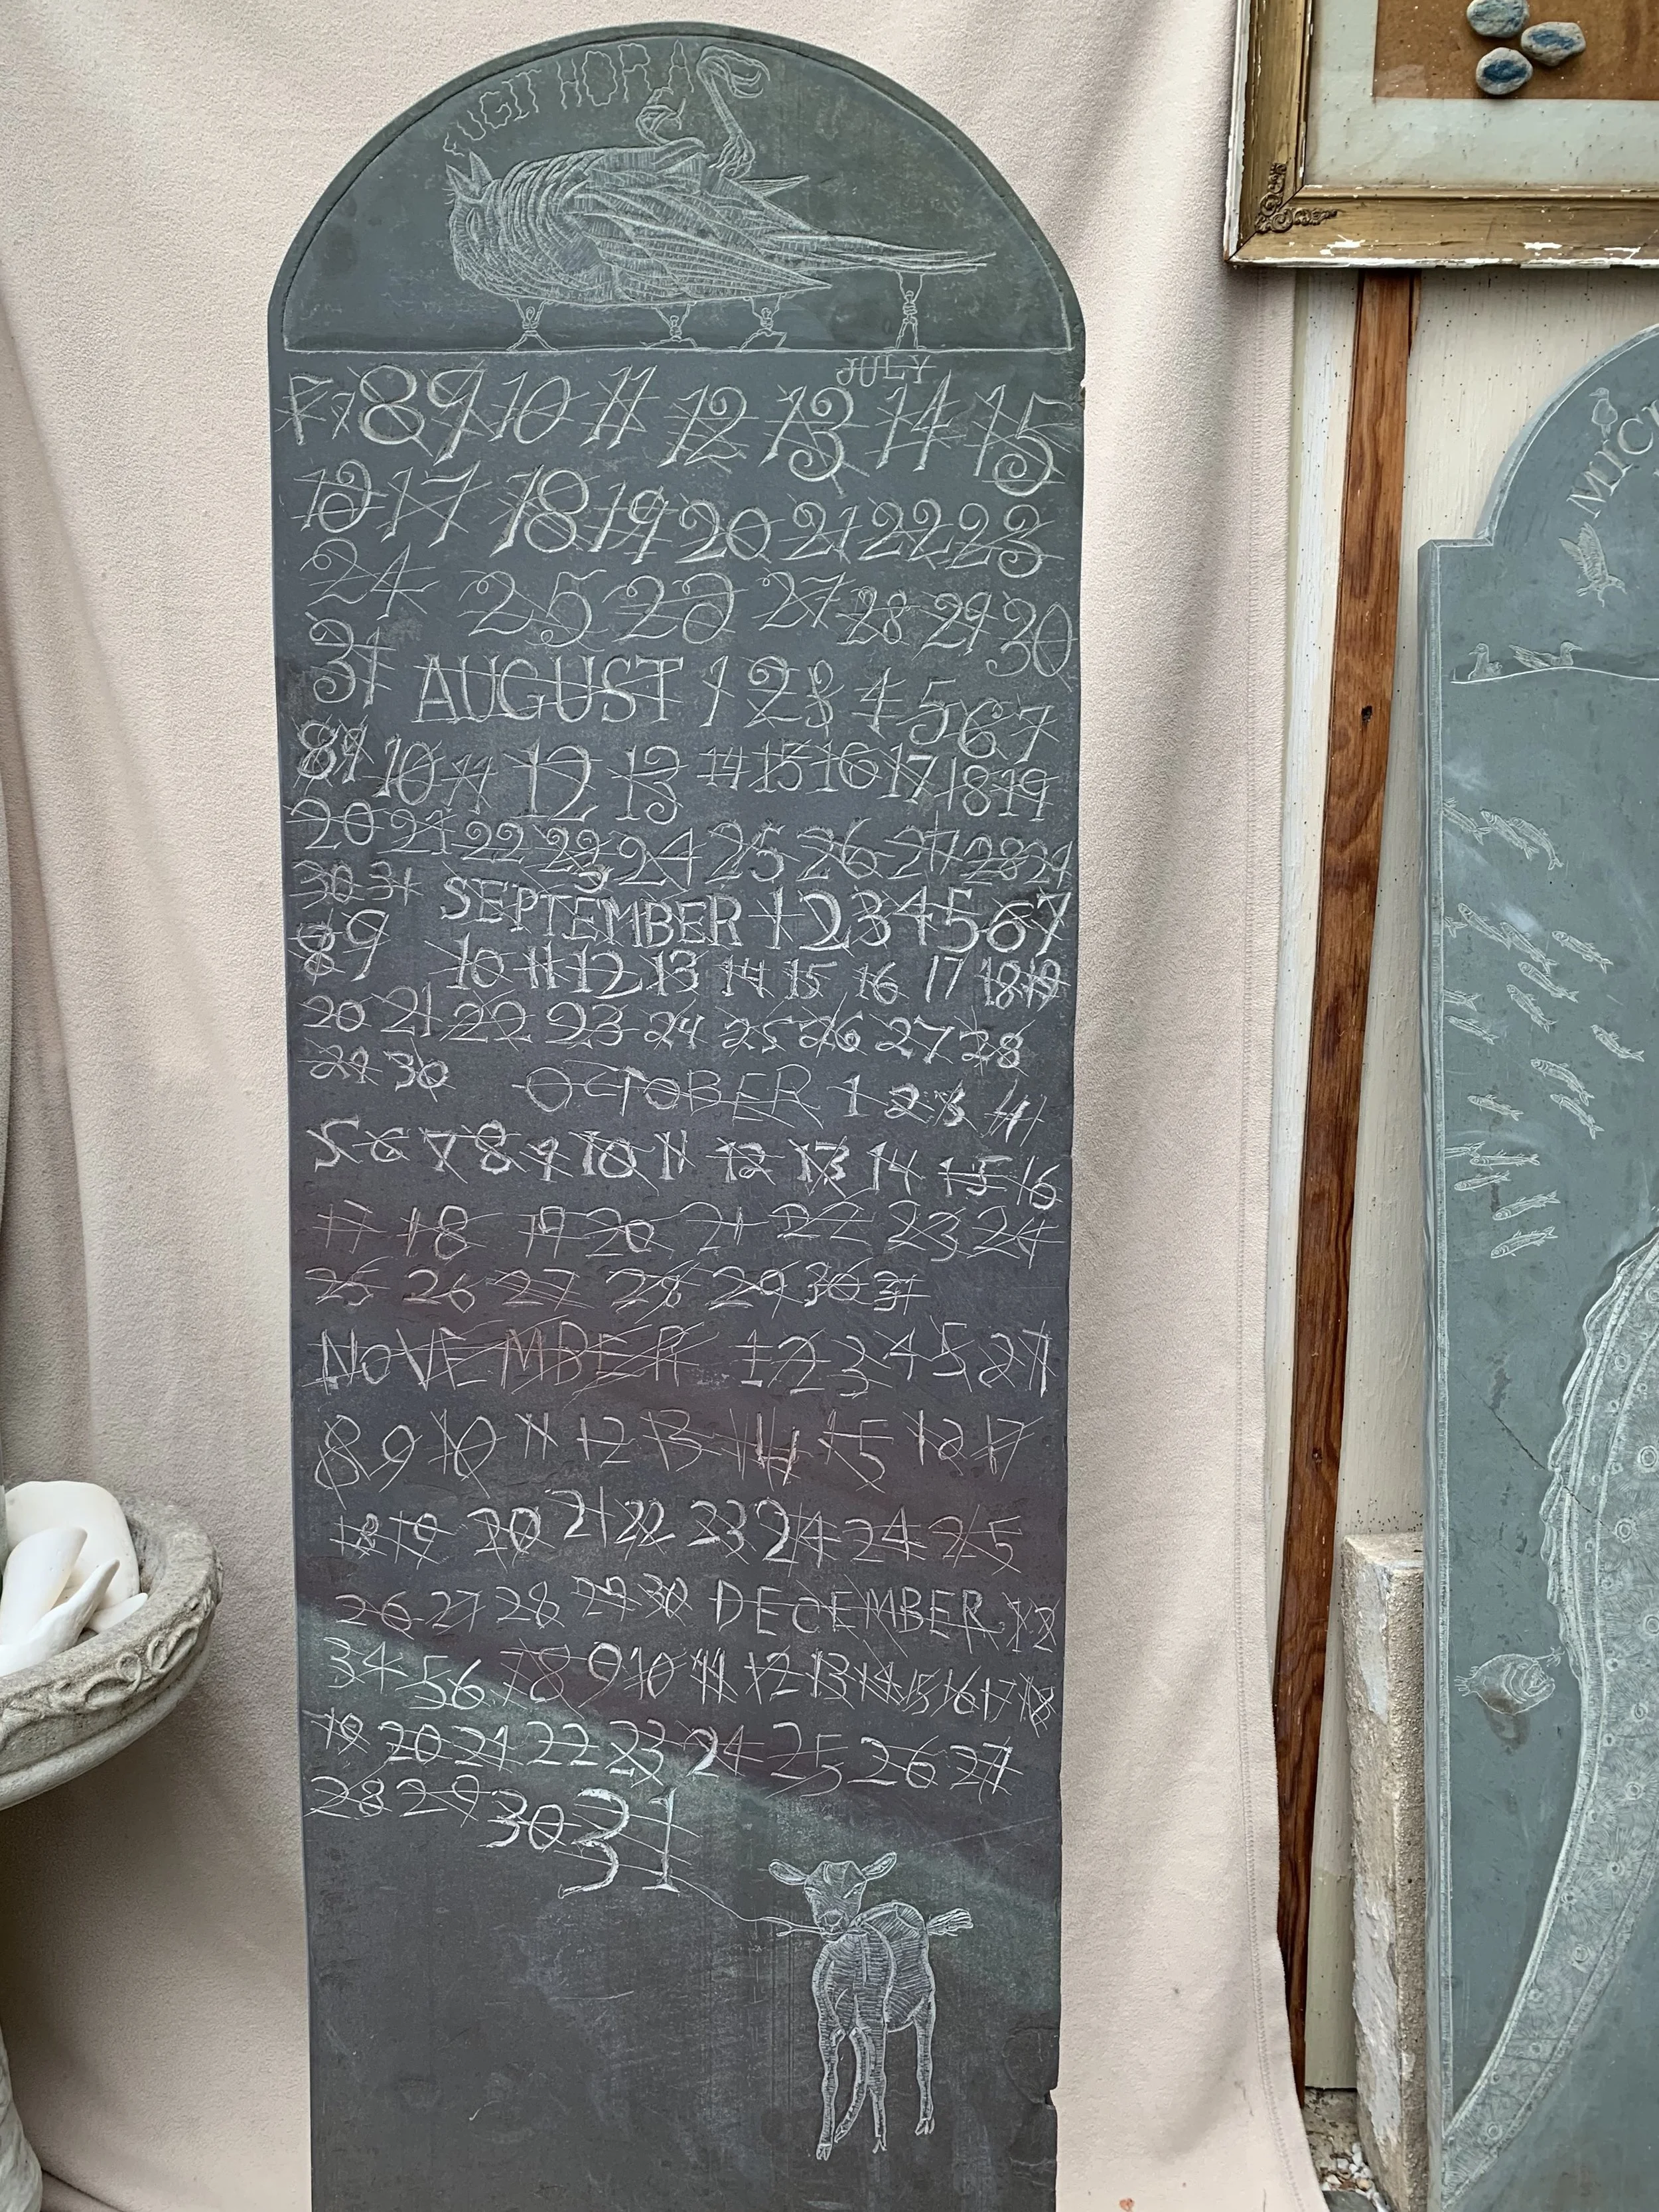 FUGIT HORA
JULY
7 7 8 9 10 11 12 13 14 15
16 17 18 19 20 21 22 23
24 25 26 27 28 29 30
31 AUGUST 1 2 3 4 5 6 7
8 9 10 11 12 13 14 15 16 17 18 19
20 21 22 23 24 25 26 27 28 29
30 31 SEPTEMBER 1 2 3 4 5 6 7
8 9 10 11 12 13 14 15 16 17 18 19
20 21 22 23 24 25 26 27 28
29 30 OCTOBER 1 2 3 4
5 6 7 8 9 10 11 12 13 14 15 16
17 18 19 20 21 22 23 24
25 26 27 28 29 30 31
NOVEMBER 1 2 3 4 5 6 7
8 9 10 11 12 13 14 15 16 17
18 19 20 21 22 23 24 24 25
26 27 28 29 30 DECEMBER 1 2
3 4 5 6 7 8 9 10 11 12 13 14 15 16 17 18
19 20 21 22 23 24 25 26 27
28 29 30 31